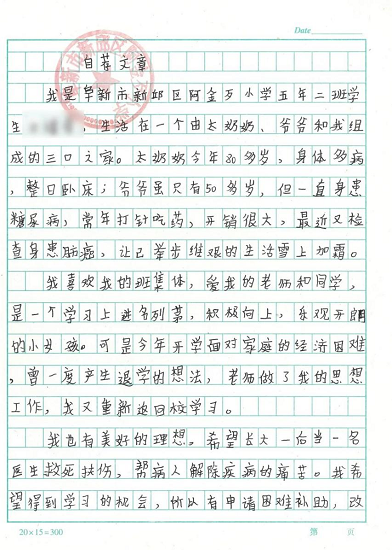 Date
自荐文章
我是阜新市新邱区阿金歹小学五年二班学
生 ，生活在一个由太奶奶、爷爷和我组
成的三口之家。太奶奶今年80多岁，身体多病
，整日卧床；爷爷虽只有50多岁，但一直身患
糖尿病，常年打针吃药，开销很大，最近又检
查身患肺癌，让已举步维艰的生活雪上加霜。
我喜欢我的班集体，爱我的老师和同学，
是一个学习上进名列 ，积极向上，乐观开朗
的小 孩。可是今年开学面对家庭的经济困难
，曾一度产生退学的想法，老师做了我的思想
工作，我又重新返回校学习。
我也有美好的理想。希望长大一后当一名
医生救死扶伤，帮病人解除疾病的痛苦。我希
望得到学习的机会，所以有申请困难补助，改
20×15=300
第 页